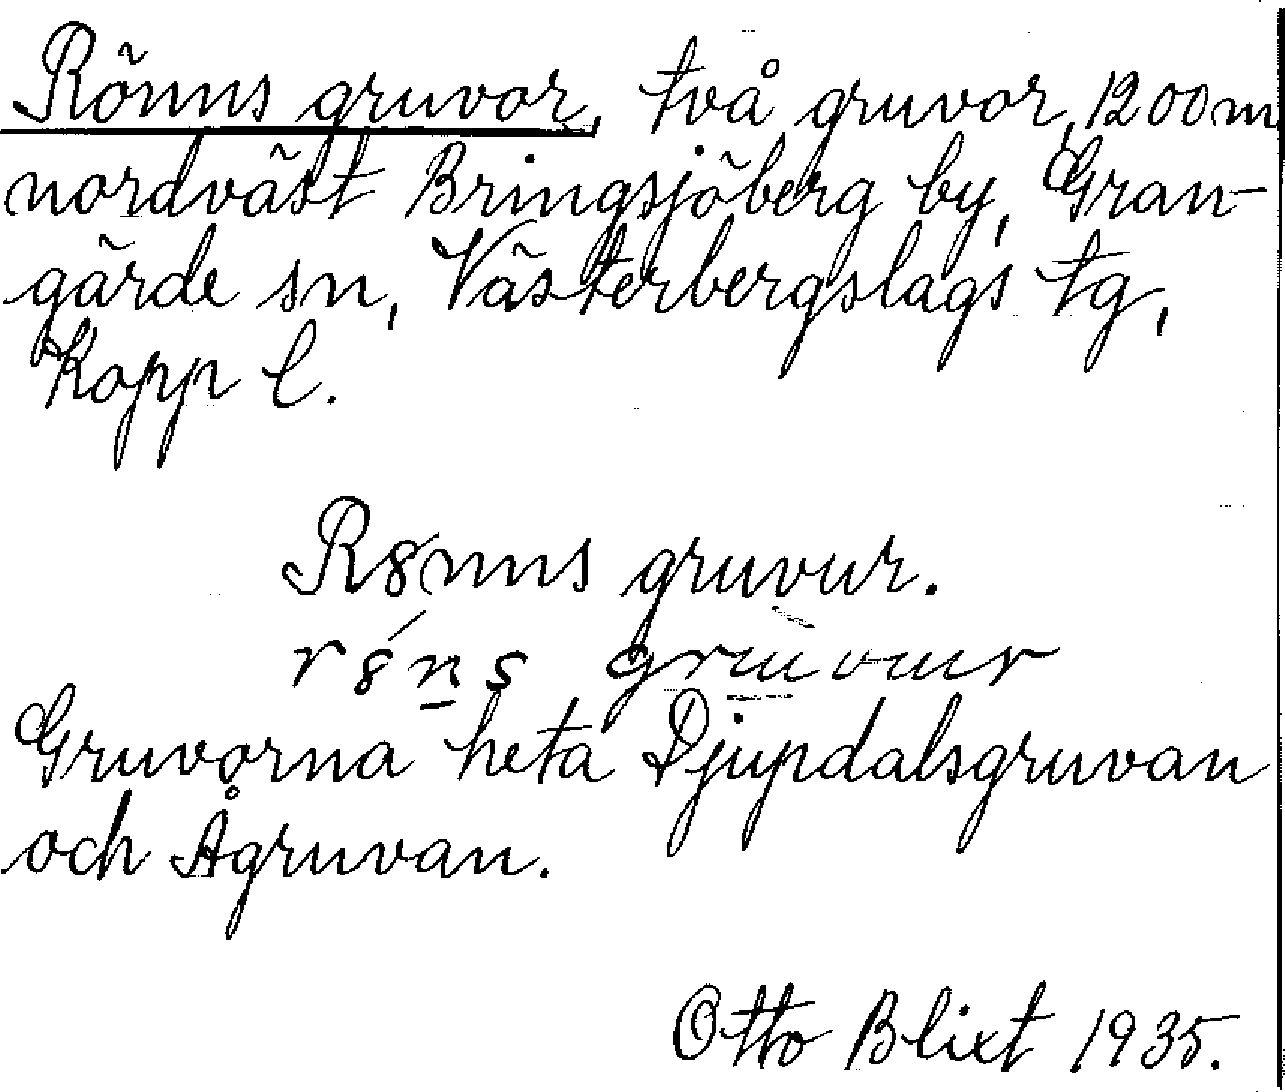 Rönns gruvor, två gruvor, 1200 m
nordväst Bringsjöberg by, Gran-
gärde sn, Västerbergslags tg,
Kopp l.
R8nns gruvur.
r8́n̲s gruvur
Gruvorna heta Djupdalsgruvan
och Ågruvan.
Otto Blixt 1935.